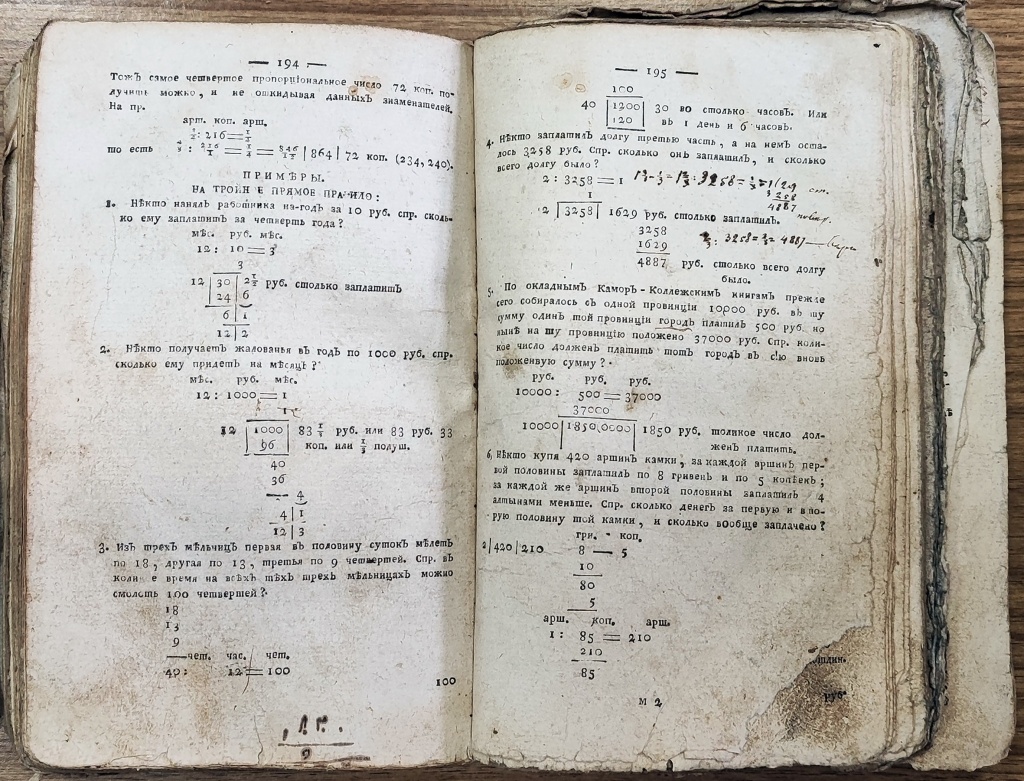 — 194 —
ТожЪ самое четвертое пропорціональное число 72 коп. по-
лучить можно, и не откидывая данныхЪ знаменателей.
На пр.
арт. коп. арш.
то есть | 864 | 72 коп. (234, 240).
ПРИМѢРЫ.
НА ПРЯМОЕ ПРАВИЛО:
1. НѢкто нанялЪ работника на-годЪ за 10 руб. спр. сколь-
ко ему заплатить за четверть года?
мѣс. руб. мѣс.
12: 10 = 3
3
12 | 30 | 2 1/2 руб. столько заплатить
24 | 6
6 | 1
12 | 2
2. НѢкто получаетЪ жалованья вЪ годЪ по 1000 руб. спр.
сколько ему придетЪ на мѢсяцЪ?
мѣс. руб. мѣс.
12: 1000 = 1
1
12 | 1000 | 83 1/3 руб. или 83 руб. 33
96 | коп. или 1/3 полуш.
40
36
— 4
4 | 1
12 | 3
3. ИзЪ трехЪ мѢльницЪ первая вЪ половину сутокЪ мѢлетЪ
по 18, другая по 13, третья по 9 четвертей. Спр. вЪ
время на всѢхЪ тѢхЪ трехЪ мѢльницахЪ можно
смолоть 100 четвертей?
18
13
9
— чет. час. чет.
40: 12 = 100
100
— 195 —
100
40 | 1200 | 30 во столько часовЪ. Или
120 | вЪ 1 день и 6 часовЪ.
4. НѢкто заплатилЪ долгу третью часть, а на немЪ оста-
лось 3258 руб. Спр. сколько онЪ заплатилЪ, и сколько
всего долгу было?
2: 3258 = 1
1
2 | 3258 | 1629 руб. столько заплатилЪ.
3258
4887
3258
1629
4887 руб. столько всего долгу
было.
: 3258 = = 4887
5. По окладнымЪ КаморЪ-Коллежскимъ книгамЪ прежде
сего собиралось сЪ одной провинціи 10000 руб. вЪ ту
сумму одинЪ той провинціи городЪ платилЪ 500 руб. но
нынѢ на ту провинцію положено 37000 руб. Спр. коли-
кое число долженЪ платить тотЪ городЪ вЪ сію вновь
положенную сумму?
руб. руб. руб.
10000: 500 = 37000
37000
10000 | 1850,0000 | 1850 руб. толикое число дол-
женЪ платить.
6. НѢкто купя 420 аршинЪ камки, за каждой аршинЪ пер-
вой половины заплатилЪ по 8 гривенЪ и по 5 копѢекЪ;
за каждой же аршинЪ второй половины заплатилЪ 4
алтынами меньше. Спр. сколько денегЪ за первую и вто-
рую половину той камки, и сколько вообще заплачено?
гри. коп.
2 | 420 | 210 8 — 5
10
80
5
арш. коп. арш.
1: 85 = 210
210
85
М 2
руб.